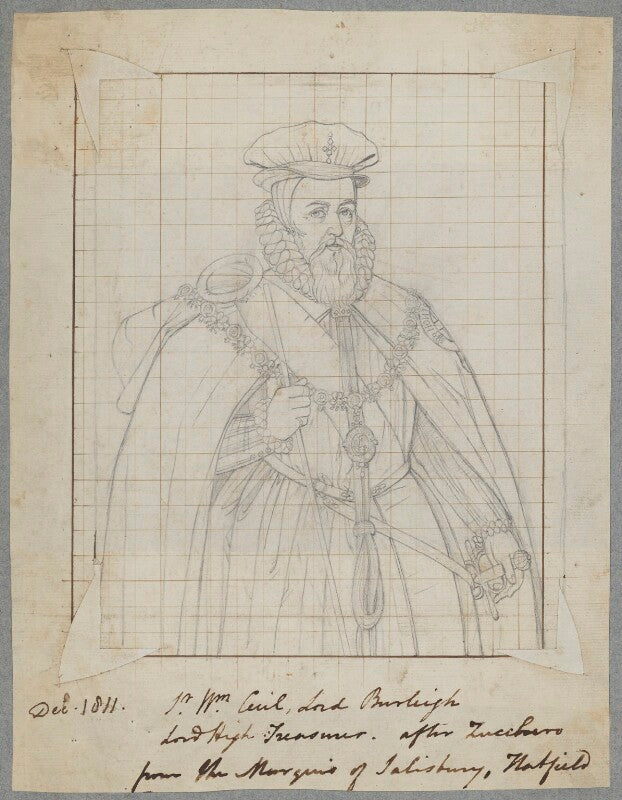 Decr. 1811. Sr Wm Cecil, Lord Burleigh
Lord High Treasurer. after Zucchero
from the Marquis of Salisbury, Hatfield